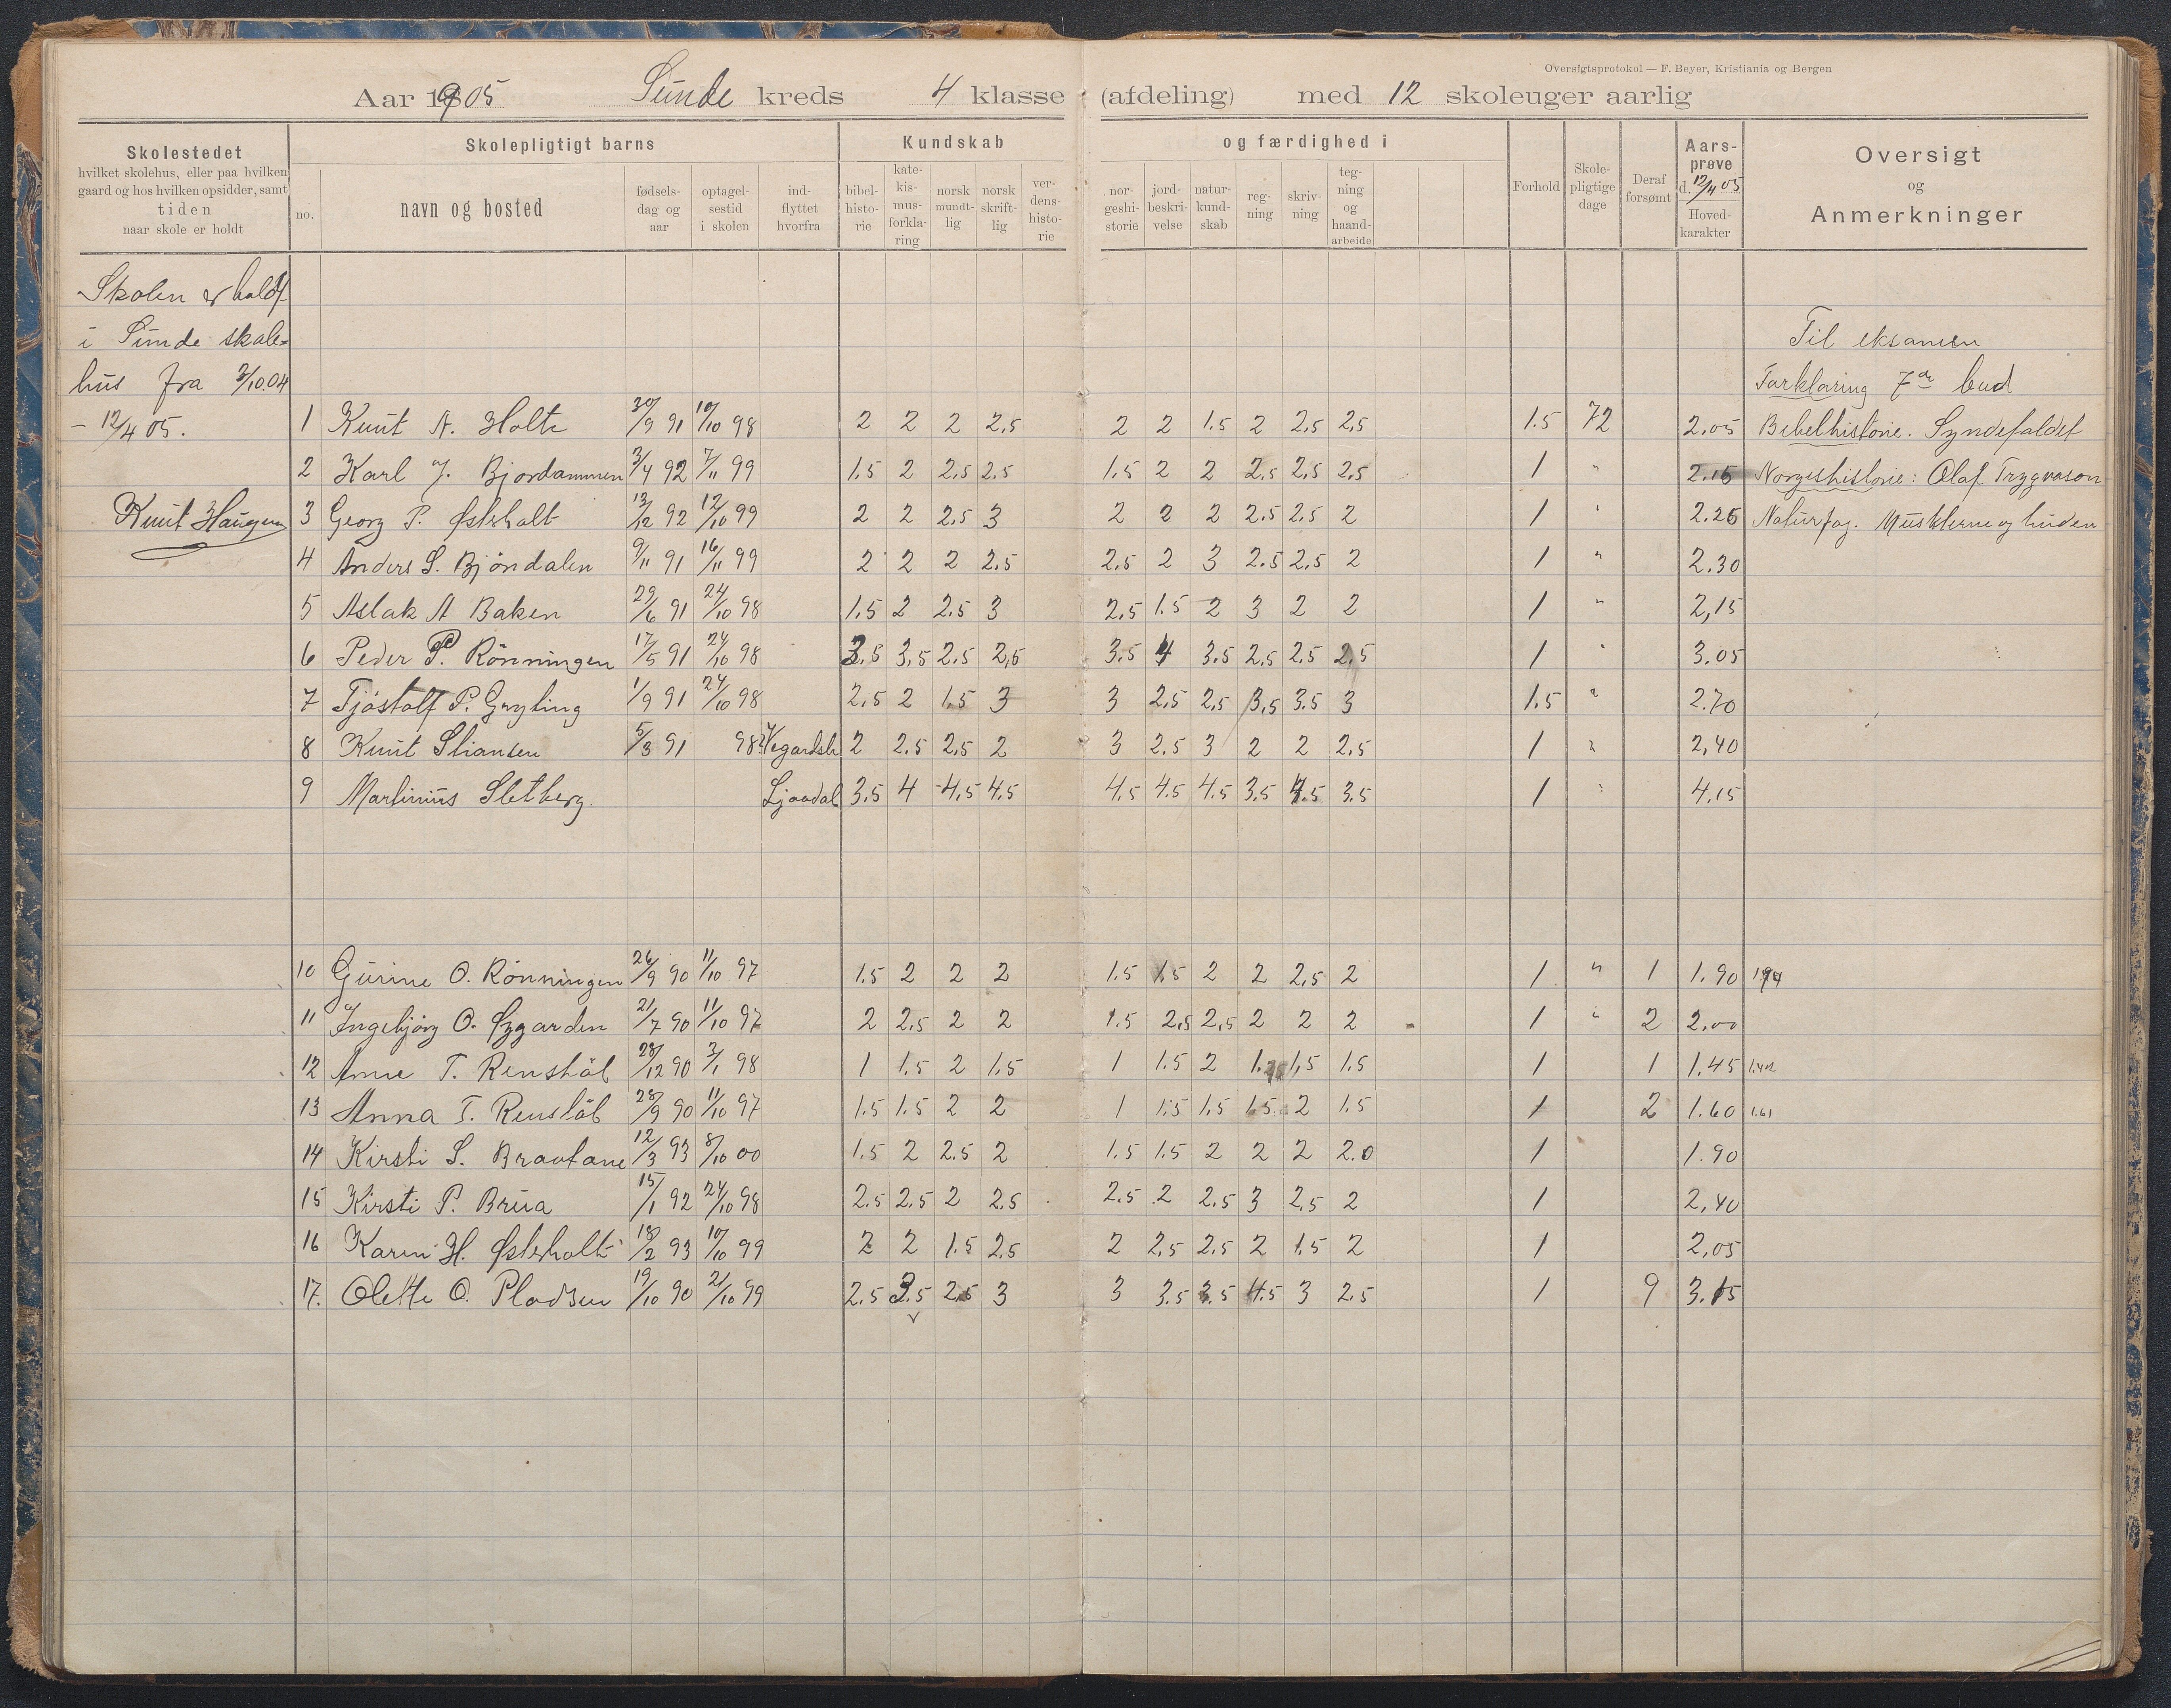 Oversigtsprotokol — F. Beyer, Kristiania og Bergen
Aar 1905 Sunde kreds 4 klasse (afdeling) med 12 skoleuger aarlig
Skolestedet
hvilket skolehus, eller paa hvilken
gaard og hos hvilken opsidder, samt
tiden
naar skole er holdt
Skolepligtigt barns
no.
navn og bosted
fødsels-
dag og
aar
optagel-
sestid
i skolen
ind-
flyttet
hvorfra
Kundskab
bibel-
histo-
rie
kate-
kis-
mus-
forkla-
ring
norsk
mundt-
lig
norsk
skrift-
lig
ver-
dens-
histo-
rie
og færdighed i
nor-
geshi-
storie
jord-
beskri-
velse
natur-
kund-
skab
reg-
ning
skriv-
ning
teg-
ning
og
haand-
arbeide
Forhold
Skole-
pligtige
dage
Deraf
forsømt
Aars-
prøve
d. 12/4 05
Hoved-
karakter
Oversigt
og
Anmerkninger
Skolen er holdt
i Sunde skole-
hus fra 3/10.04
- 12/4 05.
Knut Haugen
Til eksamen
Forklaring 7de bud
Bibelhistorie. Syndefaldet
Norgeshistorie: Olaf Trygvason
Naturfag. Musklerne og huden
1 Knut N. Holte 30/9 91 10/10 98 2 2 2 2,5 2 2 1.5 2 2,5 2,5 1.5 72 2.05
2 Karl J. Bjordammen 3/4 92 7/11 99 1.5 2 2,5 2.5 1.5 2 2 2,5 2,5 2,5 1 " 2.15
3 Georg P. Østerholt 13/12 92 12/10 99 2 2 2.5 3 2 2 2 2.5 2.5 2 1 " 2.25
4 Anders S. Bjöndalen 9/11 91 16/11 99 2 2 2 2.5 2.5 2 3 2.5 2.5 2 1 " 2.30
5 Aslak A Baken 29/6 91 24/10 98 1.5 2 2.5 3 2.5 1.5 2 3 2 2 1 " 2,15
6 Peder P. Rönningen 17/5 91 24/10 98 3.5 3,5 2.5 2,5 3.5 4 3.5 2,5 2.5 2,5 1 " 3.05
7 Tjöstolf P. Gryting 1/9 91 24/10 98 2,5 2 1,5 3 3 2,5 2,5 3,5 3.5 3 1.5 " 2.70
8 Knut Stiansen 5/3 91 98? Vegardsh 2 2.5 2,5 2 3 2.5 3 2 2 2,5 1 " 2,40
9 Martinius Sletberg. Ljosdal 3.5 4 4,5 4.5 4.5 4.5 4.5 3.5 4.5 3.5 1 " 4,15
10 Gurine O. Rönningen 26/9 90 11/10 97 1.5 2 2 2 1.5 1.5 2 2 2,5 2 1 " 1 1.90 1.94
11 Ingebjörg O. Øygarden 21/7 90 11/10 97 2 2,5 2 2 1.5 2,5 2,5 2 2 2 1 " 2 2.00
12 Anne T. Renstöl 28/12 90 3/1 98 1 1.5 2 1.5 1 1.5 2 1. 1,5 1.5 1 1 1.45
13 Anna T. Renstöl 28/9 90 11/10 97 1.5 1.5 2 2 1 1.5 1.5 1.5 2 1.5 1 2 1.60 1.61
14 Kirsti S. Brautane 12/3 93 8/10 00 1.5 2 2.5 2 1.5 1.5 2 2 2 2.0 1 1.90
15 Kirsti P. Brua 15/1 92 24/10 98 2.5 2.5 2 2.5 2.5 2 2.5 3 2,5 2 1 2,40
16 Karen H. Østerholt 18/2 93 10/10 99 2 2 1.5 2.5 2 2,5 2.5 2 1.5 2 1 2,05
17. Olette O. Pladsen 19/10 90 21/10 99 2.5 3.5 2.5 3 3 3.5 3.5 4.5 3 2.5 1 9 3.15